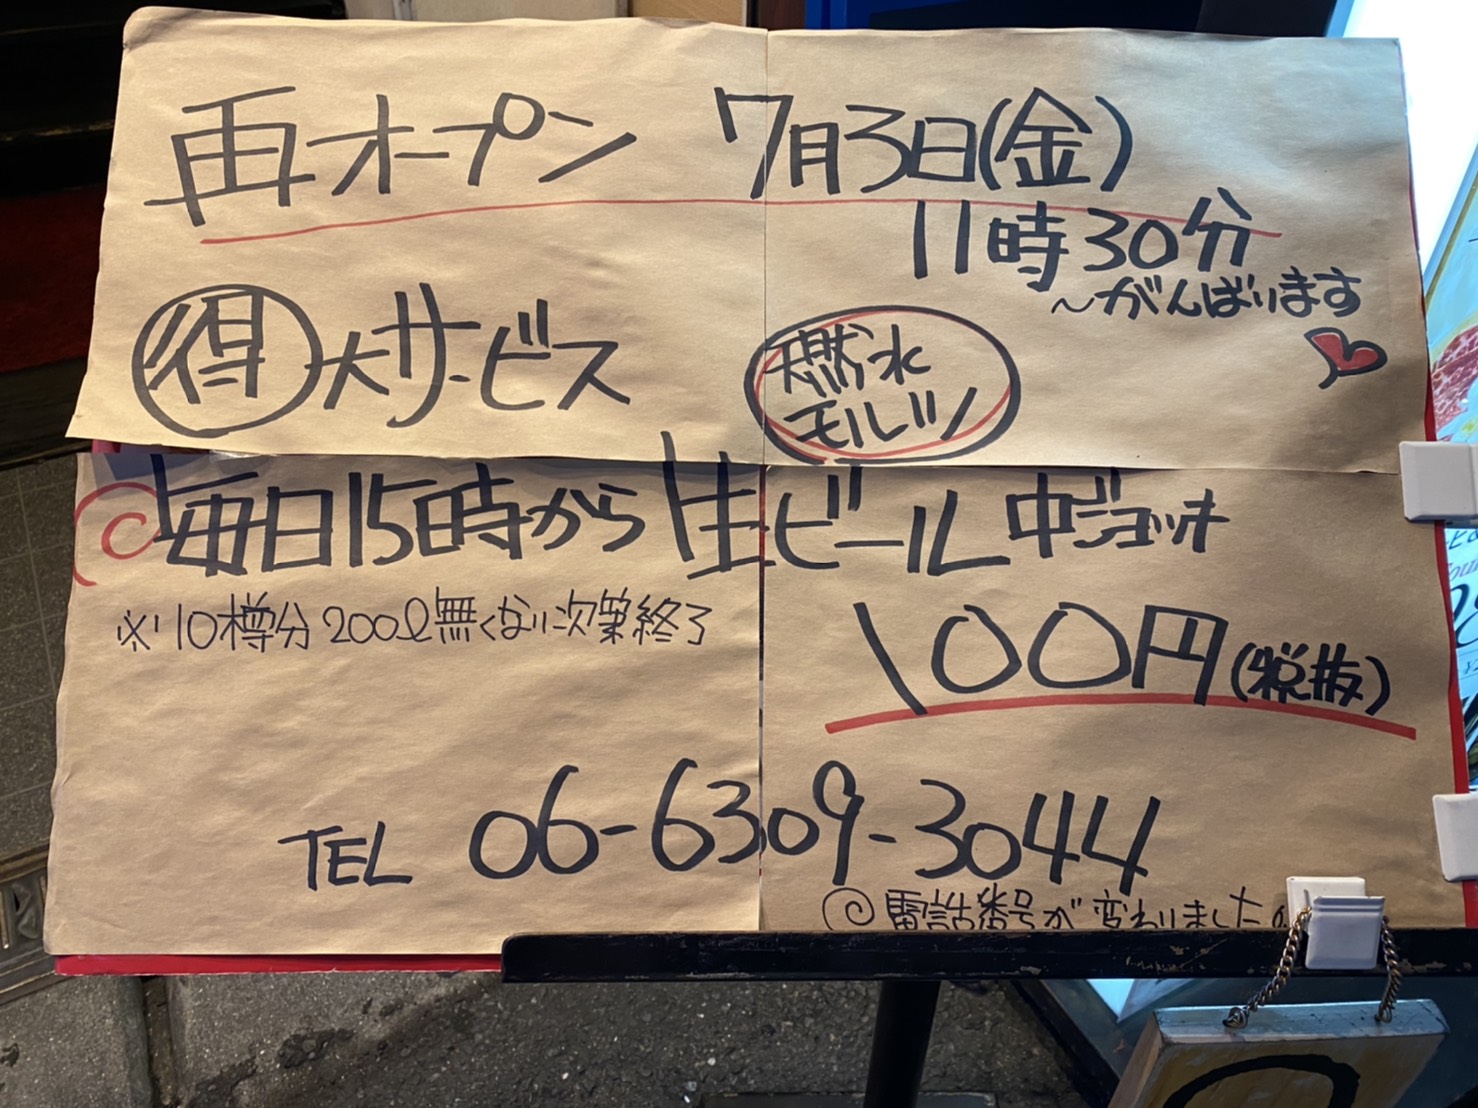 再オープン 7月3日(金)
11時30分
〜がんばります
得 大サービス
天然水
モルツ
毎日15時から 生ビール 中ジョッキ
※10樽分 200ℓ無くなり次第終了
100円(税抜)
TEL 06-6309-3044
◎電話番号が変わりました